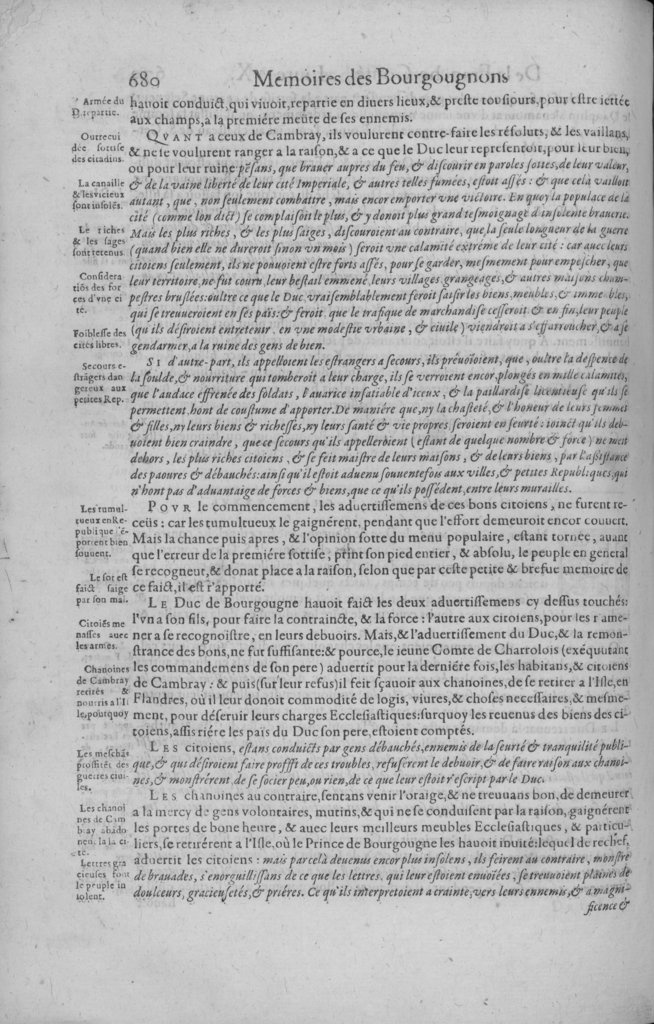 680 Memoires des Bourgougnons
hauoit conduict, qui viuoit, repartie en diuers lieux, & preste tousiours, pour estre iettée
aux champs, a la premiére meute de ses ennemis.
QVANT a ceux de Cambray, ils voulurent contre-faire les résoluts, & les vaillans,
& ne se voulurent ranger a la raison, & a ce que le Duc leur representoit, pour leur bien,
ou pour leur ruine: pésans, que brauer aupres du feu, & discourir en paroles sottes, de leur valeur,
& de la vaine liberté de leur cité Imperiale, & autres telles fumées, estoit assés: & que cela vailloit
autant, que, non seulement combattre, mais encor emporter vne victoire. En quoy la populace de la
cité (comme lon dict) se complaisoit le plus, & y donoit plus grand tesmoignage d'insolente brauerie.
Mais les plus riches, & les plus saiges, discouroient au contraire, que la seule longueur de la guerre
(quand bien elle ne dureroit sinon vn mois) seroit vne calamité extréme de leur cité: car auec leurs
citoiens seulement, ils ne pouuoient estre forts assés, pour se garder, mesmement pour empescher, que
leur territoire, ne fut couru, leur bestail emmené, leurs villages, grangeages, & autres maisons cham-
pestres bruslées: oultre ce que le Duc, vraisemblablement feroit saisir les biens, meubles, & imme-bles,
qui se treuueroient en ses païs: & feroit, que le trafique de marchandise cesseroit: & en fin, leur peuple
(qu'ils désiroient entretenir, en vne modestie vrbaine, & ciuile) viendroit a s'effarroucher, & a se
gendarmer, a la ruine des gens de bien.
SI d'autre-part, ils appelloient les estrangers a secours, ils préuoïoient, que, oultre la despence de
la soulde, & nourriture qui tomberoit a leur charge, ils se verroient encor, plongés en mille calamités,
que l'audace effrenée des soldats, l'auarice insatiable d'iceux, & la paillardise licentieuse qu'ils se
permettent, hont de coustume d'apporter. De maniére que, ny la chasteté, & l'honeur de leurs femmes
& filles, ny leurs biens & richesses, ny leurs santé & vie propres seroient en seurté: ioinct qu'ils deb-
uoient bien craindre, que ce secours qu'ils appelleroient (estant de quelque nombre & force) ne meit
dehors, les plus riches citoiens, & se feit maistre de leurs maisons, & de leurs biens, par l'assistance
des paoures & débauchés: ainsi qu'il estoit aduenu souuentefois aux villes, & petites Republiques, qui
n'hont pas d'aduantaige de forces & biens, que ce qu'ils possédent, entre leurs murailles.
POVR le commencement, les aduertissemens de ces bons citoiens, ne furent re-
ceüs: car les tumultueux le gaignérent, pendant que l'effort demeuroit encor couuert.
Mais la chance puis apres, & l'opinion sotte du menu populaire, estant tornée, auant
que l'erreur de la premiére sottise, print son pied entier, & absolu, le peuple en general
se recogneut, & donat place a la raison, selon que par ceste petite & brefue memoire de
ce faict, il est r'apporté.
LE Duc de Bourgougne hauoit faict les deux aduertissemens cy dessus touchés:
l'vn a son fils, pour faire la contraincte, & la force: l'autre aux citoiens, pour les r'ame-
ner a se recognoistre, en leurs debuoirs. Mais, & l'aduertissement du Duc, & la remon-
strance des bons, ne fut suffisante: & pource, le ieune Comte de Charrolois (exéqutant
les commandemens de son pere) aduertit pour la derniére fois, les habitans, & citoiens
de Cambray: & puis (sur leur refus) il feit sçauoir aux chanoines, de se retirer a l'Isle, en
Flandres, où il leur donoit commodité de logis, viures, & choses necessaires, & mesme-
ment, pour déseruir leurs charges Ecclesiastiques: surquoy les reuenus des biens des ci-
toiens, assis riére les païs du Duc son pere, estoient comptés.
LES citoiens, estans conduicts par gens débauchés, ennemis de la seurté & tranquilité publi-
que, & qui désiroient faire proffit de ces troubles, refuserent le debuoir, & de faire raison aux chanoi-
nes, & monstrérent, de se socier peu, ou rien, de ce que leur estoit r'escript par le Duc.
LES chanoines au contraire, sentans venir l'oraige, & ne treuuans bon, de demeurer
a la mercy de gens volontaires, mutins, & qui ne se conduisent par la raison, gaignérent
les portes de bone heure, & auec leurs meilleurs meubles Ecclesiastiques, & particu-
liers, se retirérent a l'Isle, où le Prince de Bourgougne les hauoit inuité: lequel de rechef,
aduertit les citoiens: mais par celà deuenus encor plus insolens, ils feirent au contraire, monstre
de brauades, s'enorguillissans de ce que les lettres, qui leur estoient enuoiées, se treuuoient plaines de
doulceurs, gracieusetés, & priéres. Ce qu'ils interpretoient a crainte, vers leurs ennemis, & a magni-
ficence &
Armée du
D. repartie.
Outrecui
dée sottise
des citadins.
La canaille
& les vicieux
sont insolés.
Le riches
& les sages
sont retenus.
Considera
tiõs des for
ces d'vne ci
té.
Foiblesse des
cités libres.
Secours e-
strãgers dan
gereux aux
petites Rep.
Les tumul-
tueux en Re-
publique s'ẽ-
portent bien
souuent.
Le sot est
faict saige
par son mal.
Citoiẽs me
nasses auec
les armes.
Chanoines
de Cambray
retirés &
nourris a l'Isle
& le pourquoy
Les meschãs
proffitẽt des
guerres ciui-
les.
Les chanoi
nes de Cam
bray abãdo-
nent la ci
té.
Lettres gra
cieuses font
le peuple in
solent.